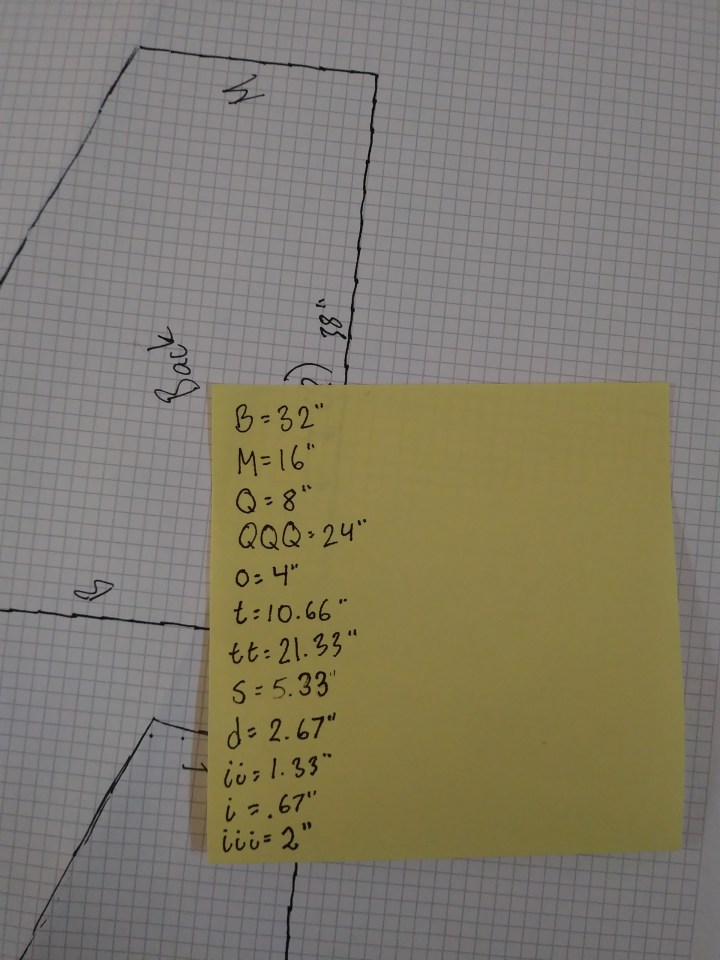 M
38"
Back
B
B=32"
M=16"
Q=8"
QQQ=24"
o=4"
t=10.66"
tt=21.33"
s=5.33"
d=2.67"
ii=1.33"
i=.67"
iii=2"